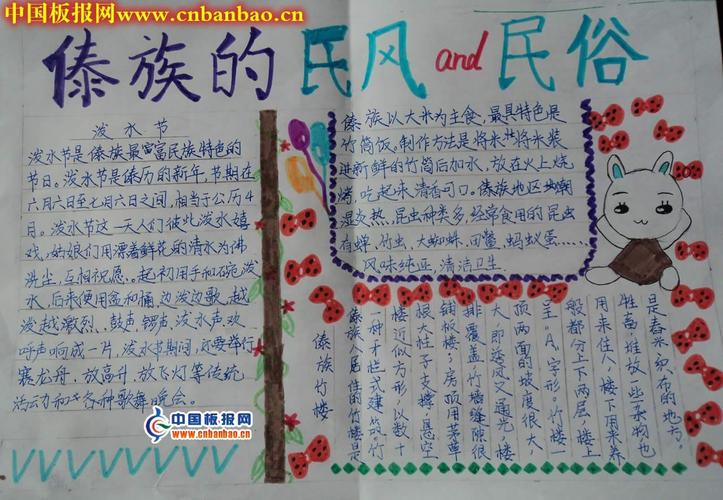 中国板报网.com
www.cnbanbao.cn
中国板报网.com
www.cnbanbao.cn
傣族的民风and民俗
泼水节
泼水节是傣族最富富民族特色的
节日。泼水节是傣历的新年,节期在
六月六日至七月六日之间,相当于公历4
日。泼水节这一天人们彼此泼水嬉
戏,姑娘们用漂着鲜花的清水为佛
洗尘,互相祝愿。起初用手和碗泼
水,后来便用盆和桶,边泼边歌,越
泼越激烈、鼓声、锣声、泼水声、欢
呼声响成一片,泼水节期间,还要举行
赛龙舟,放高升,放飞灯等传统
活动和各种歌舞晚会。
傣族以大米为主食,最具特色是
竹筒饭。制作方法是将米将米装
进新鲜的竹筒后加水,放在火上烧
烤,吃起来清香可口。傣族地区潮
湿炎热,昆虫种类多,经常食用的昆虫
有蝉、竹虫、大蜘蛛、田鳖、蚂蚁蛋……
风味纯正,清洁卫生
傣族竹楼
傣族人居住的竹楼是
一种干栏式建筑。竹
楼近似方形,以数十
根大竹子支撑,悬空
铺板楼;房顶用茅草
排覆盖,竹墙缝隙很
大,即透风又通光;楼
顶两面的坡度很大,
呈“A”字形。竹楼一
般都分上下两层,楼上
用来住人,楼下用来养
牲畜,堆放一些杂物,也
是舂米、织布的地方。
中国板报网
www.cnbanbao.cn